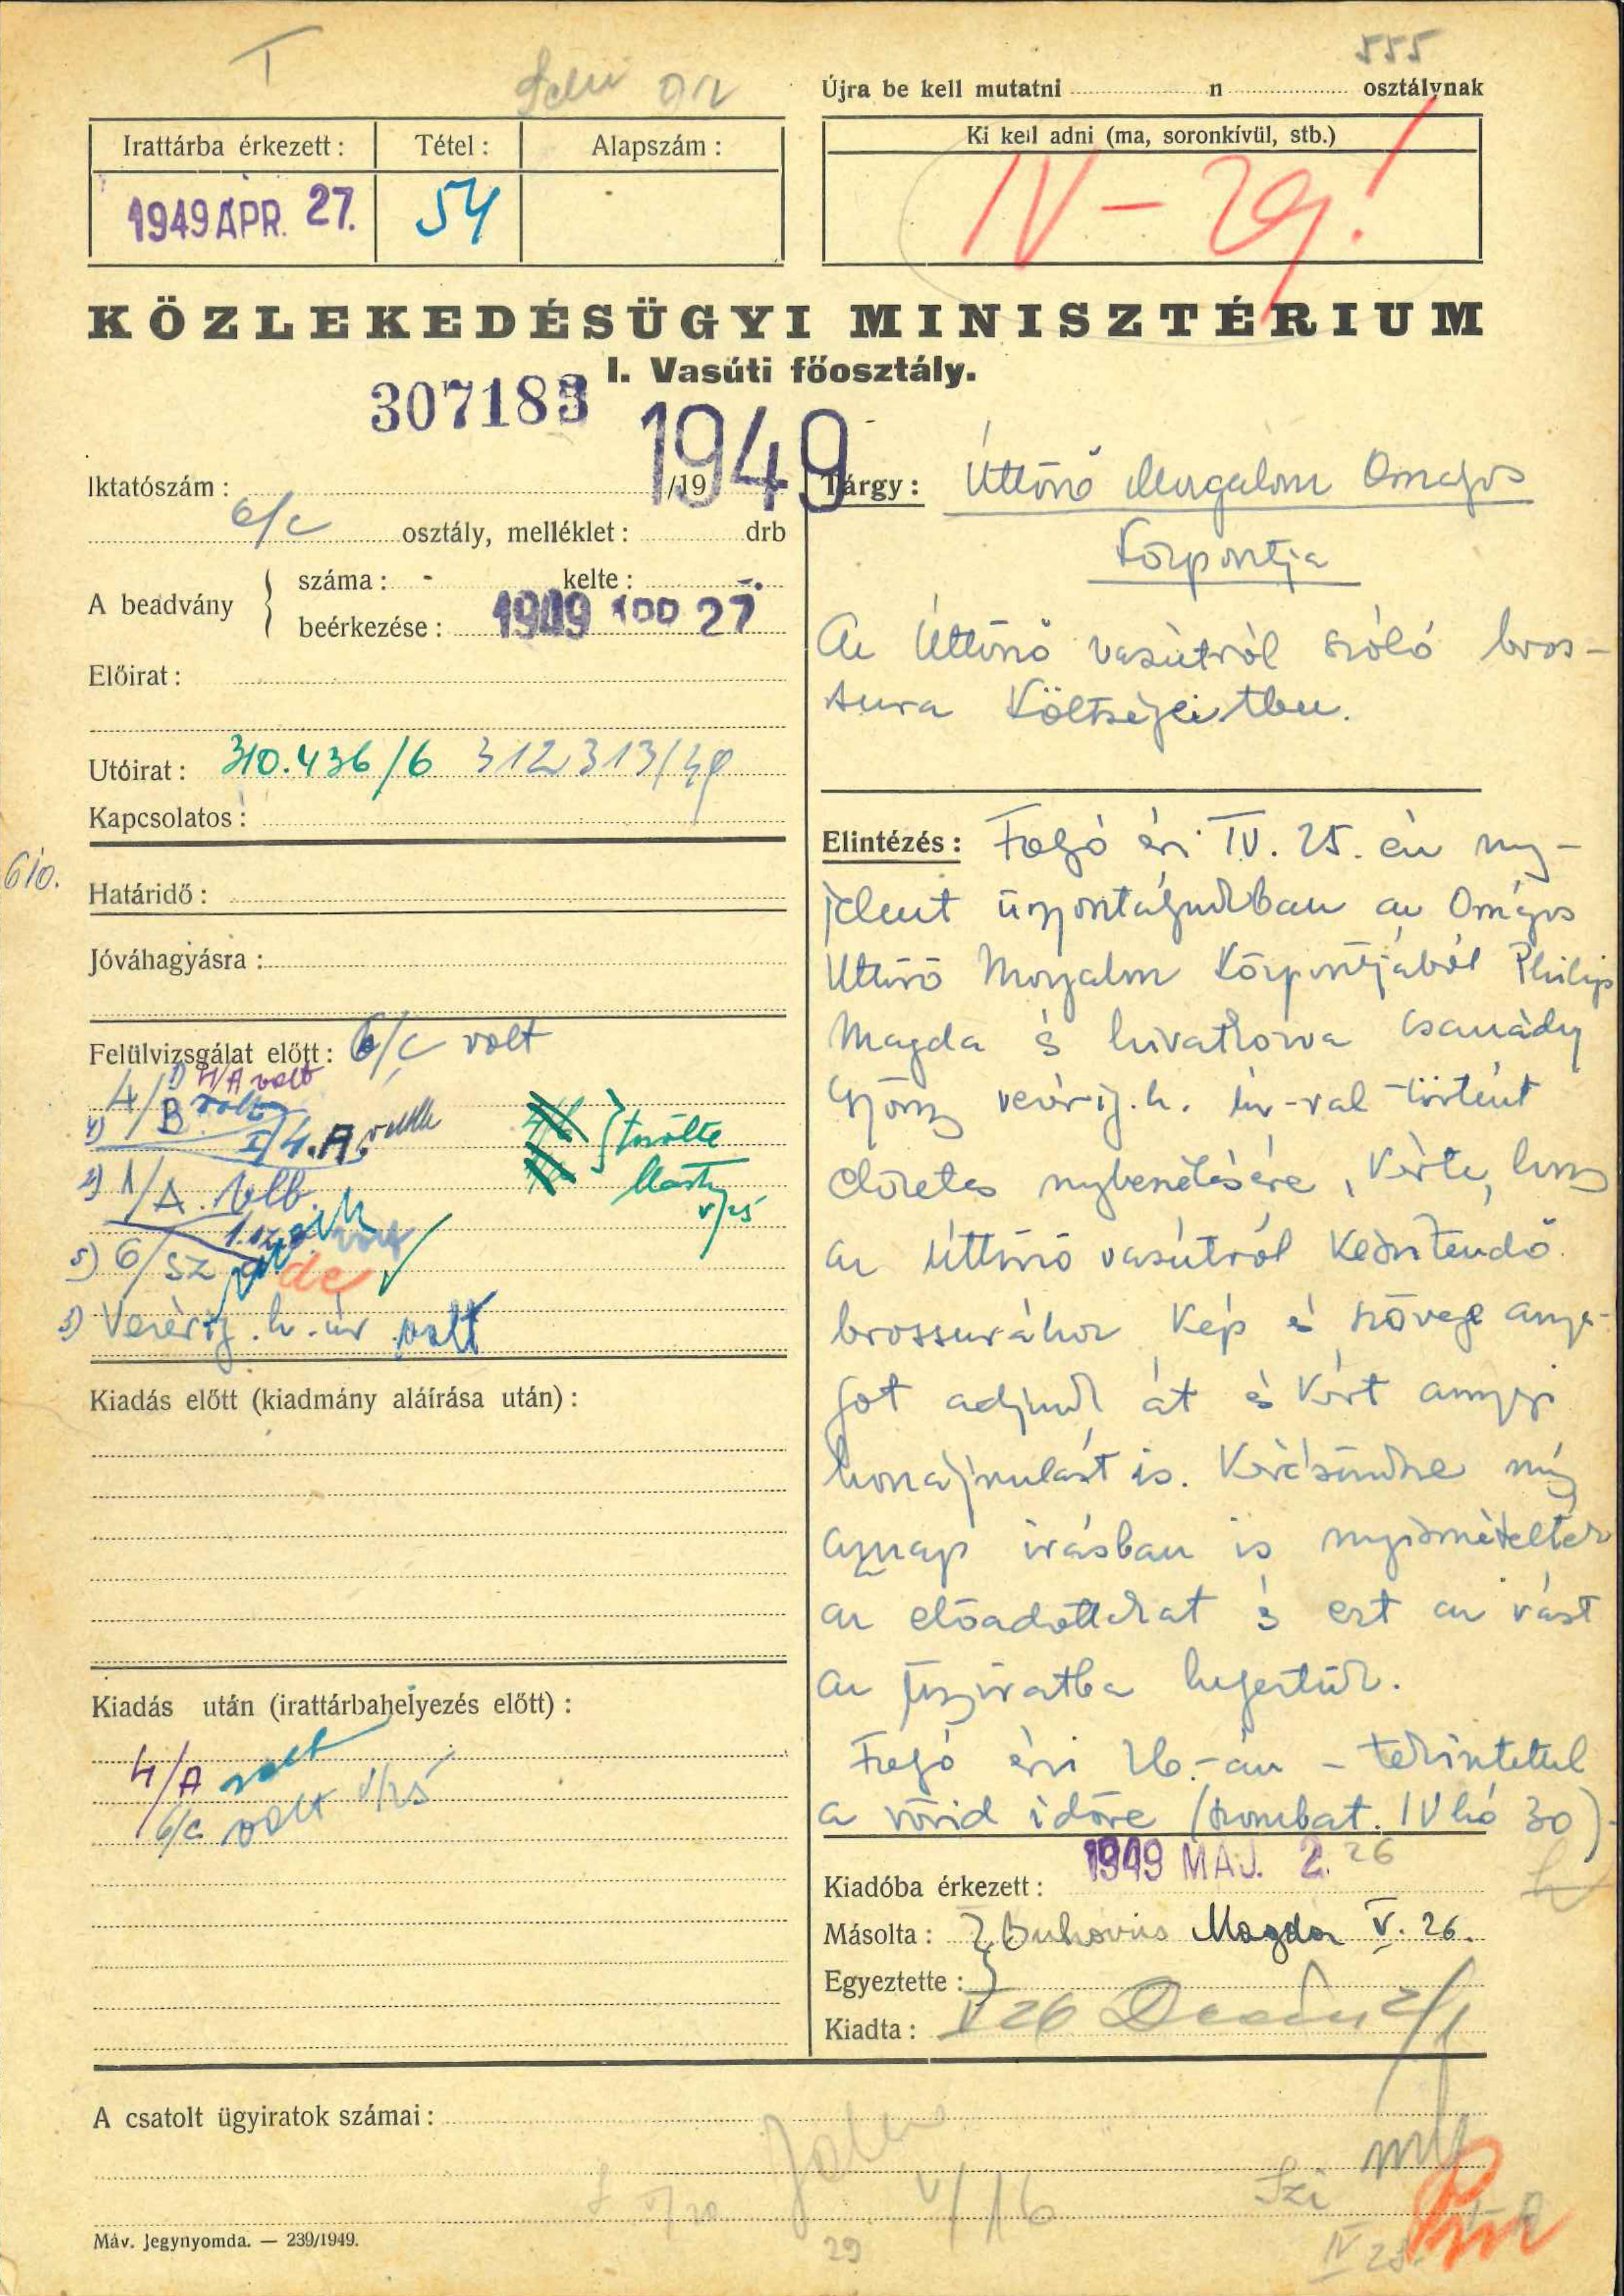 555
Újra be kell mutatni n osztálynak
Irattárba érkezett : Tétel : Alapszám :
1949 ÁPR. 27. 54
Ki kell adni (ma, soronkívül, stb.)
IV – 29!
KÖZLEKEDÉSÜGYI MINISZTÉRIUM
I. Vasúti főosztály.
307183
1949
Iktatószám : /19
6/c osztály, melléklet : drb
A beadvány
száma : - kelte :
beérkezése : 1949 27
Előirat :
Utóirat : 310.436/6 312313/49
Kapcsolatos :
610.
Határidő :
Jóváhagyásra :
Felülvizsgálat előtt : 6/c volt
1) 4/A volt
4) 4/B volt
I/4.A.
2) 1/A.
törölte
5) 6/sz
3) Vezérig. h. úr volt
Kiadás előtt (kiadmány aláírása után) :
Kiadás után (irattárbahelyezés előtt) :
4/A volt
6/c volt
Tárgy : Úttörő Mozgalom Országos
Központja
Az Úttörő vasútról szóló bros-
sura
Elintézés : Folyó évi IV. 25.-én meg-
jelent ügyosztályunkban az Országos
Úttörő Mozgalom Központjából Philip
Magda és hivatkozva Csanády
György vezérig. h. úr-ral történt
előzetes megbeszélésére, kérte, hogy
az Úttörő vasútról készítendő
brossurához kép és szöveg anya-
got adjunk át és kért anyagi
hozzájárulást is. Kérésünkre még
aznap írásban is megismételte
az előadottakat és ezt az írást
az ügyiratba helyeztük.
Folyó évi 26.-án – tekintettel
a rövid időre (szombat. IV hó 30)
Kiadóba érkezett : 1949 MÁJ. 2. 26
Másolta : Magda V. 26.
Egyeztette :
Kiadta : V 26
A csatolt ügyiratok számai :
V/16
29
Máv. Jegynyomda. — 239/1949.